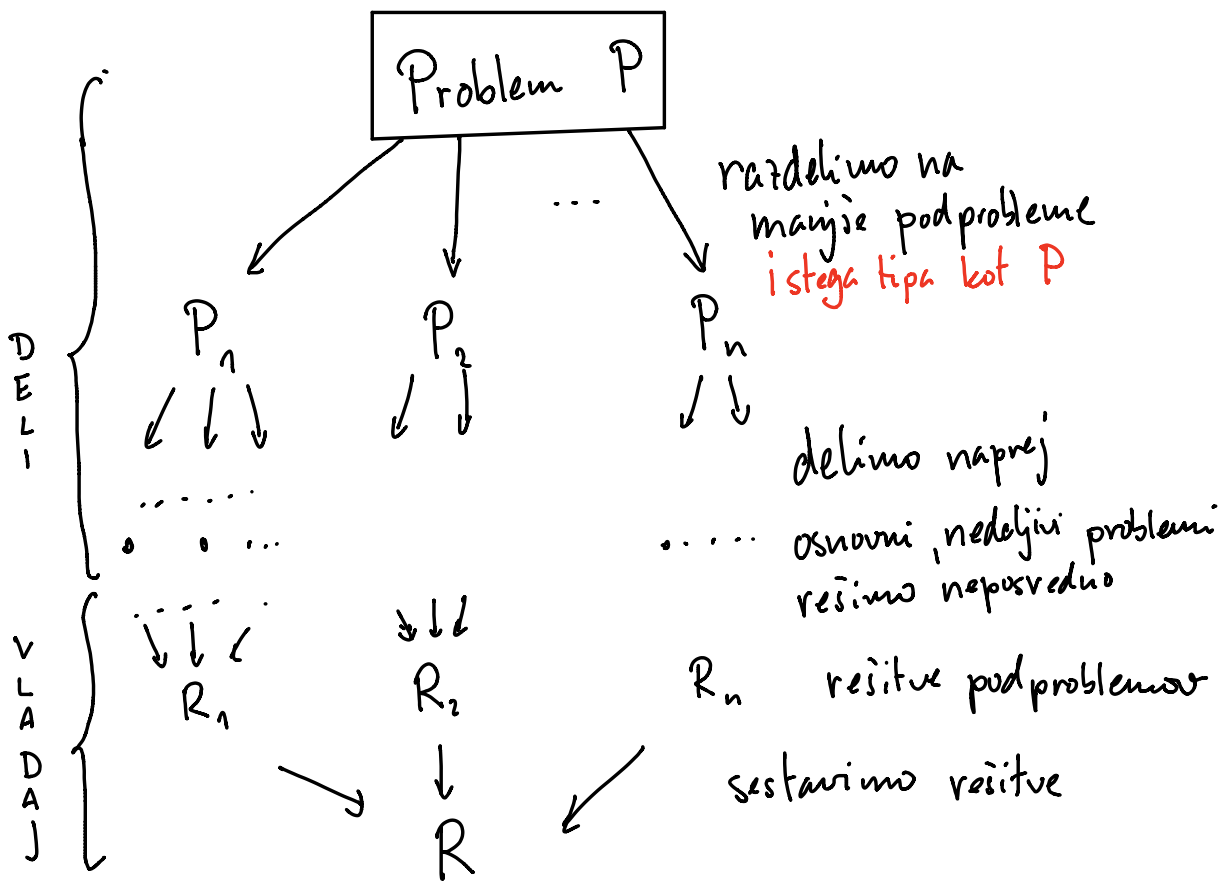 Problem P
...
razdelimo na
manjše podprobleme
istega tipa kot P
P₁ P₂ Pₙ
DELI
delimo naprej
osnovni, nedeljivi problemi
rešimo neposredno
VLADAJ
R₁ R₂ Rₙ rešitve podproblemov
sestavimo rešitve
R